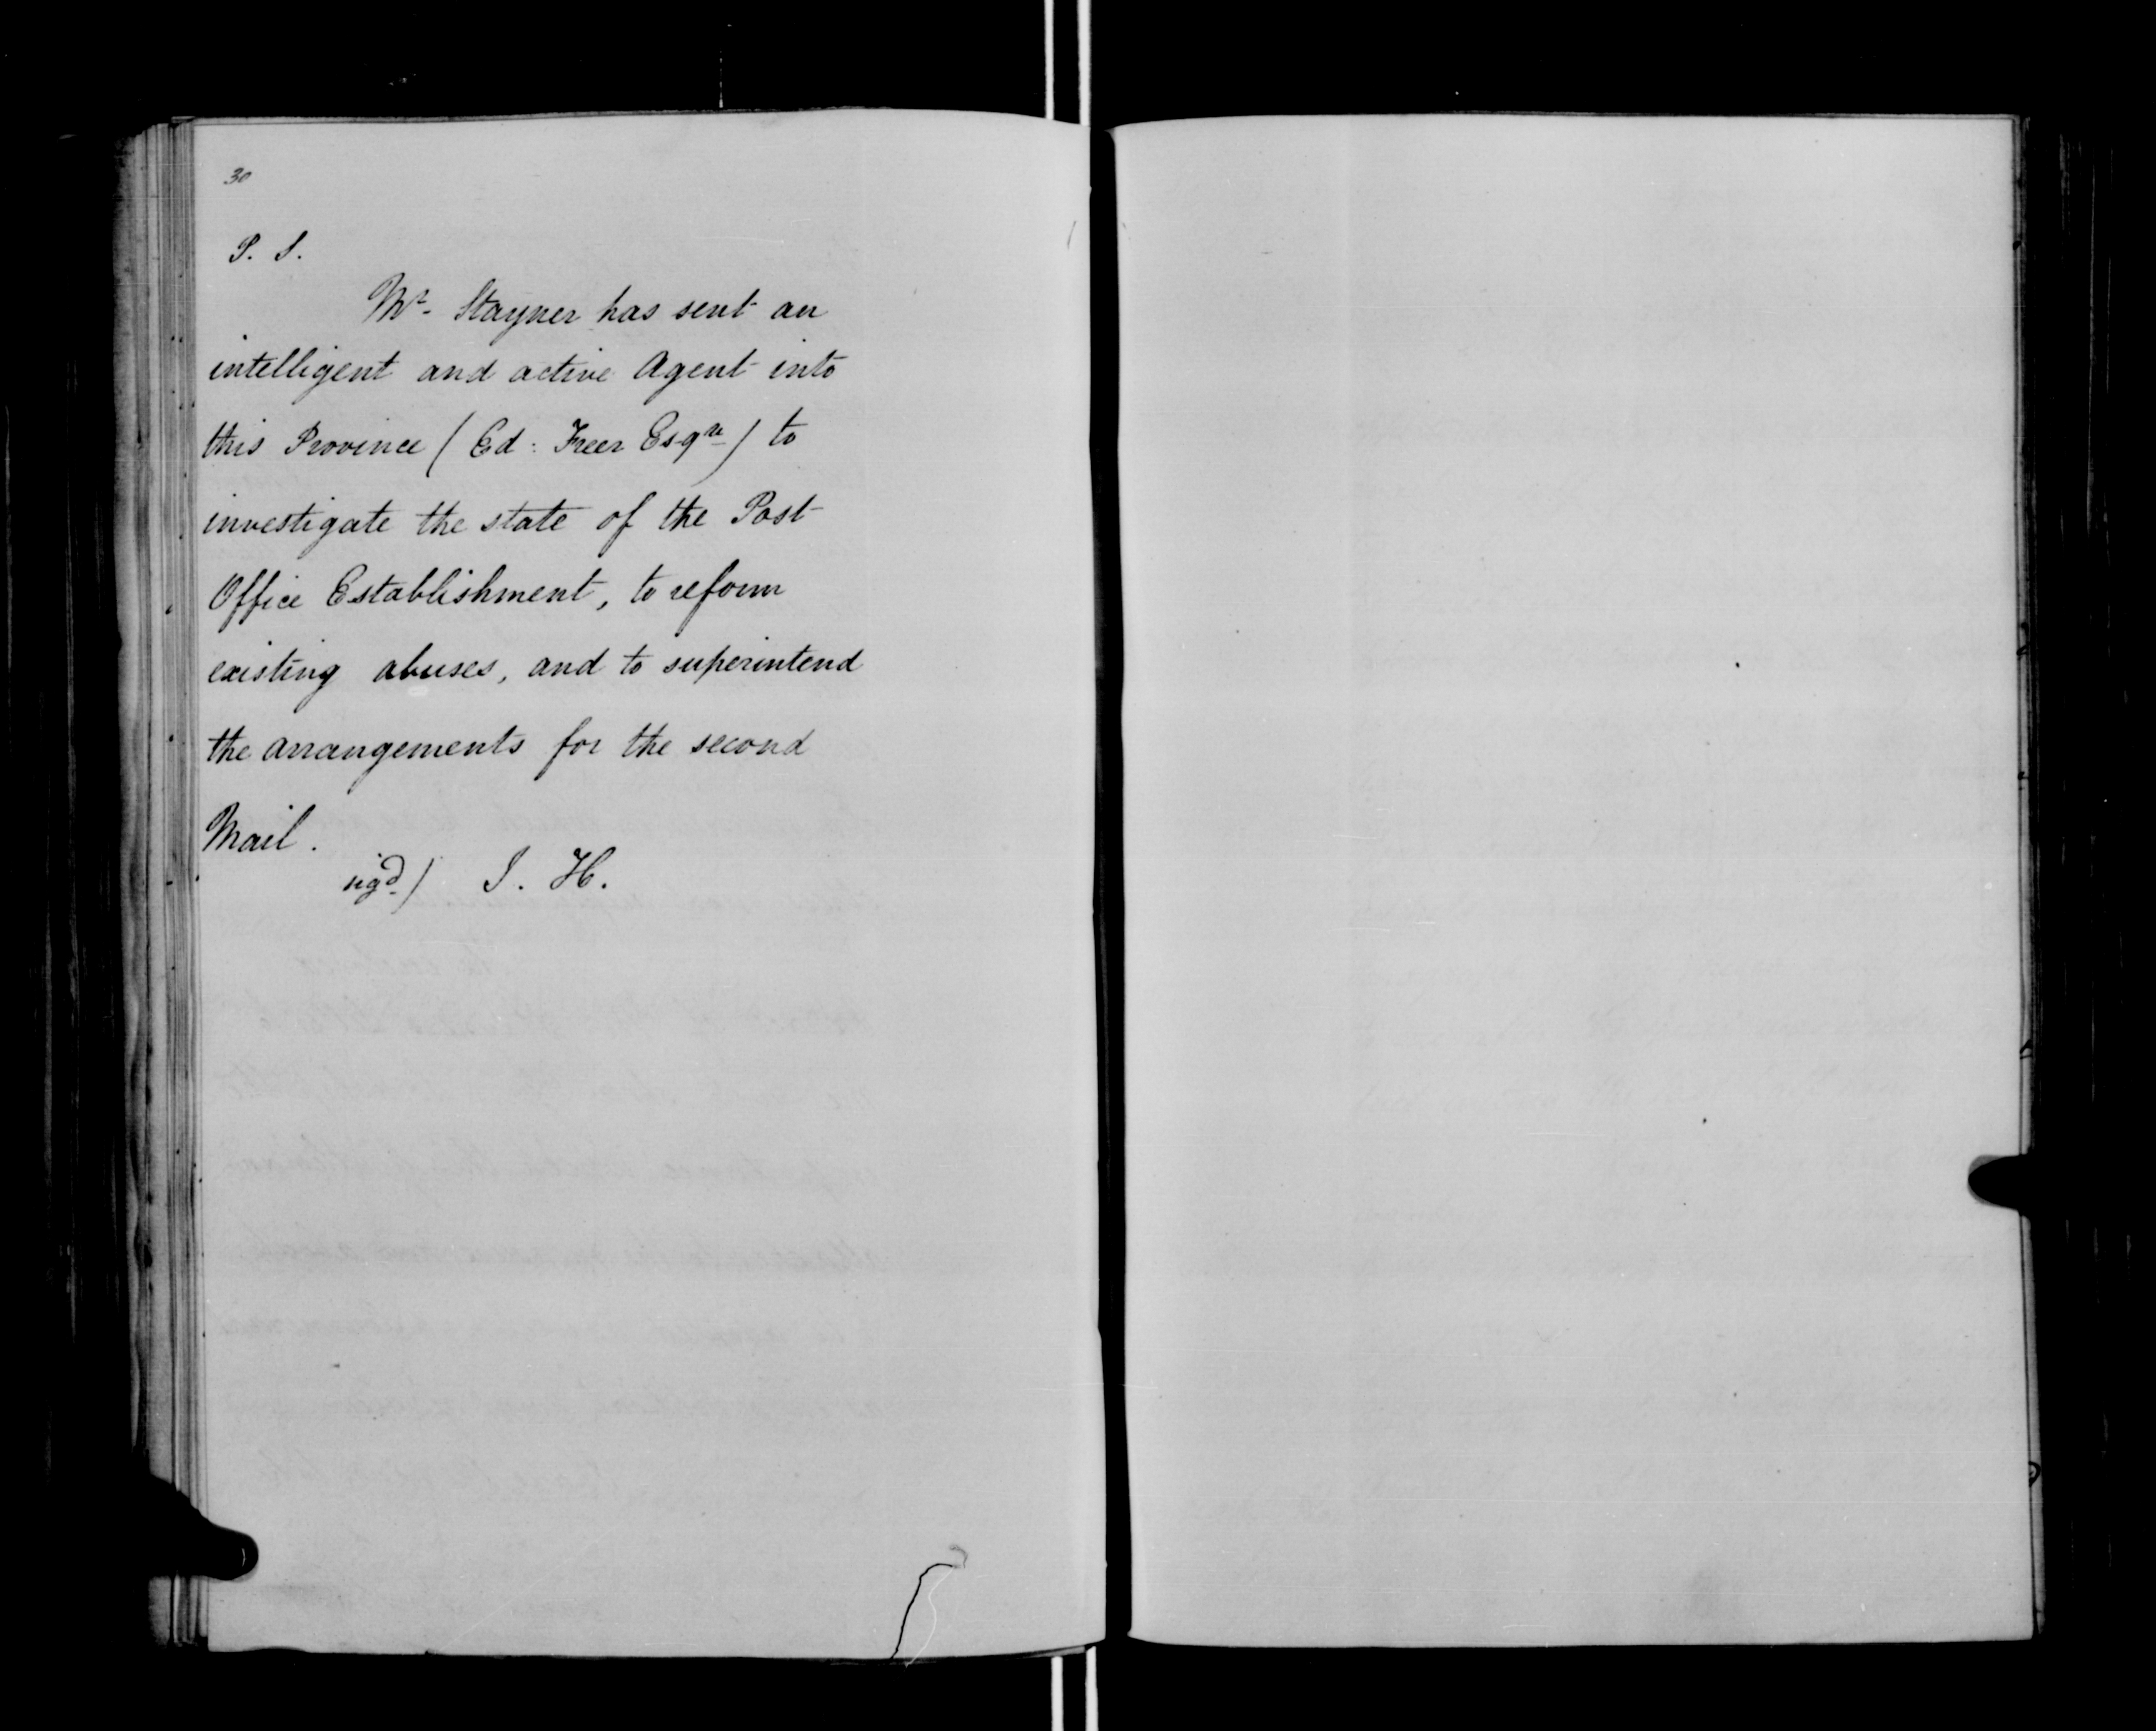 30
P. S.
Mr. Stayner has sent an
intelligent and active Agent into
this Province (Ed: Freer Esqre) to
investigate the state of the Post
Office Establishment, to reform
existing abuses, and to superintend
the arrangements for the second
Mail.
sigd.) J. H.